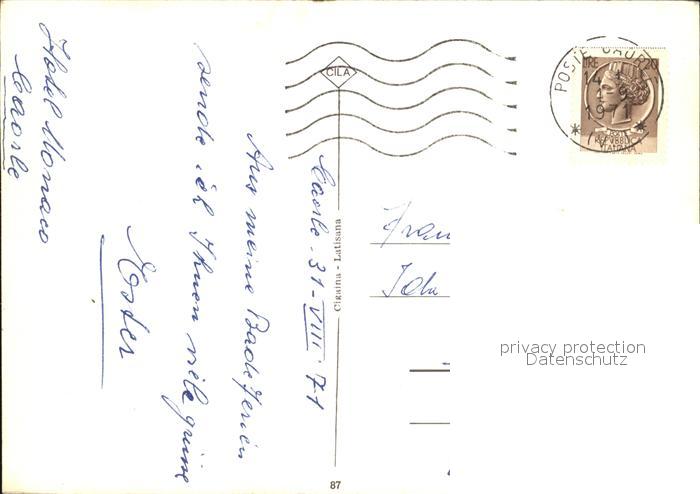 Caorle. 31-VIII 71
Aus meine Badeferien
sende ich Ihnen viele grüsse
Ester
Hotel Monaco
Caorle
CILA
Cigaina - Latisana
87
Frau
POSTE
LIRE 20
14
19 71
POSTE
REPUBBLICA
ITALIANA
privacy protection
Datenschutz